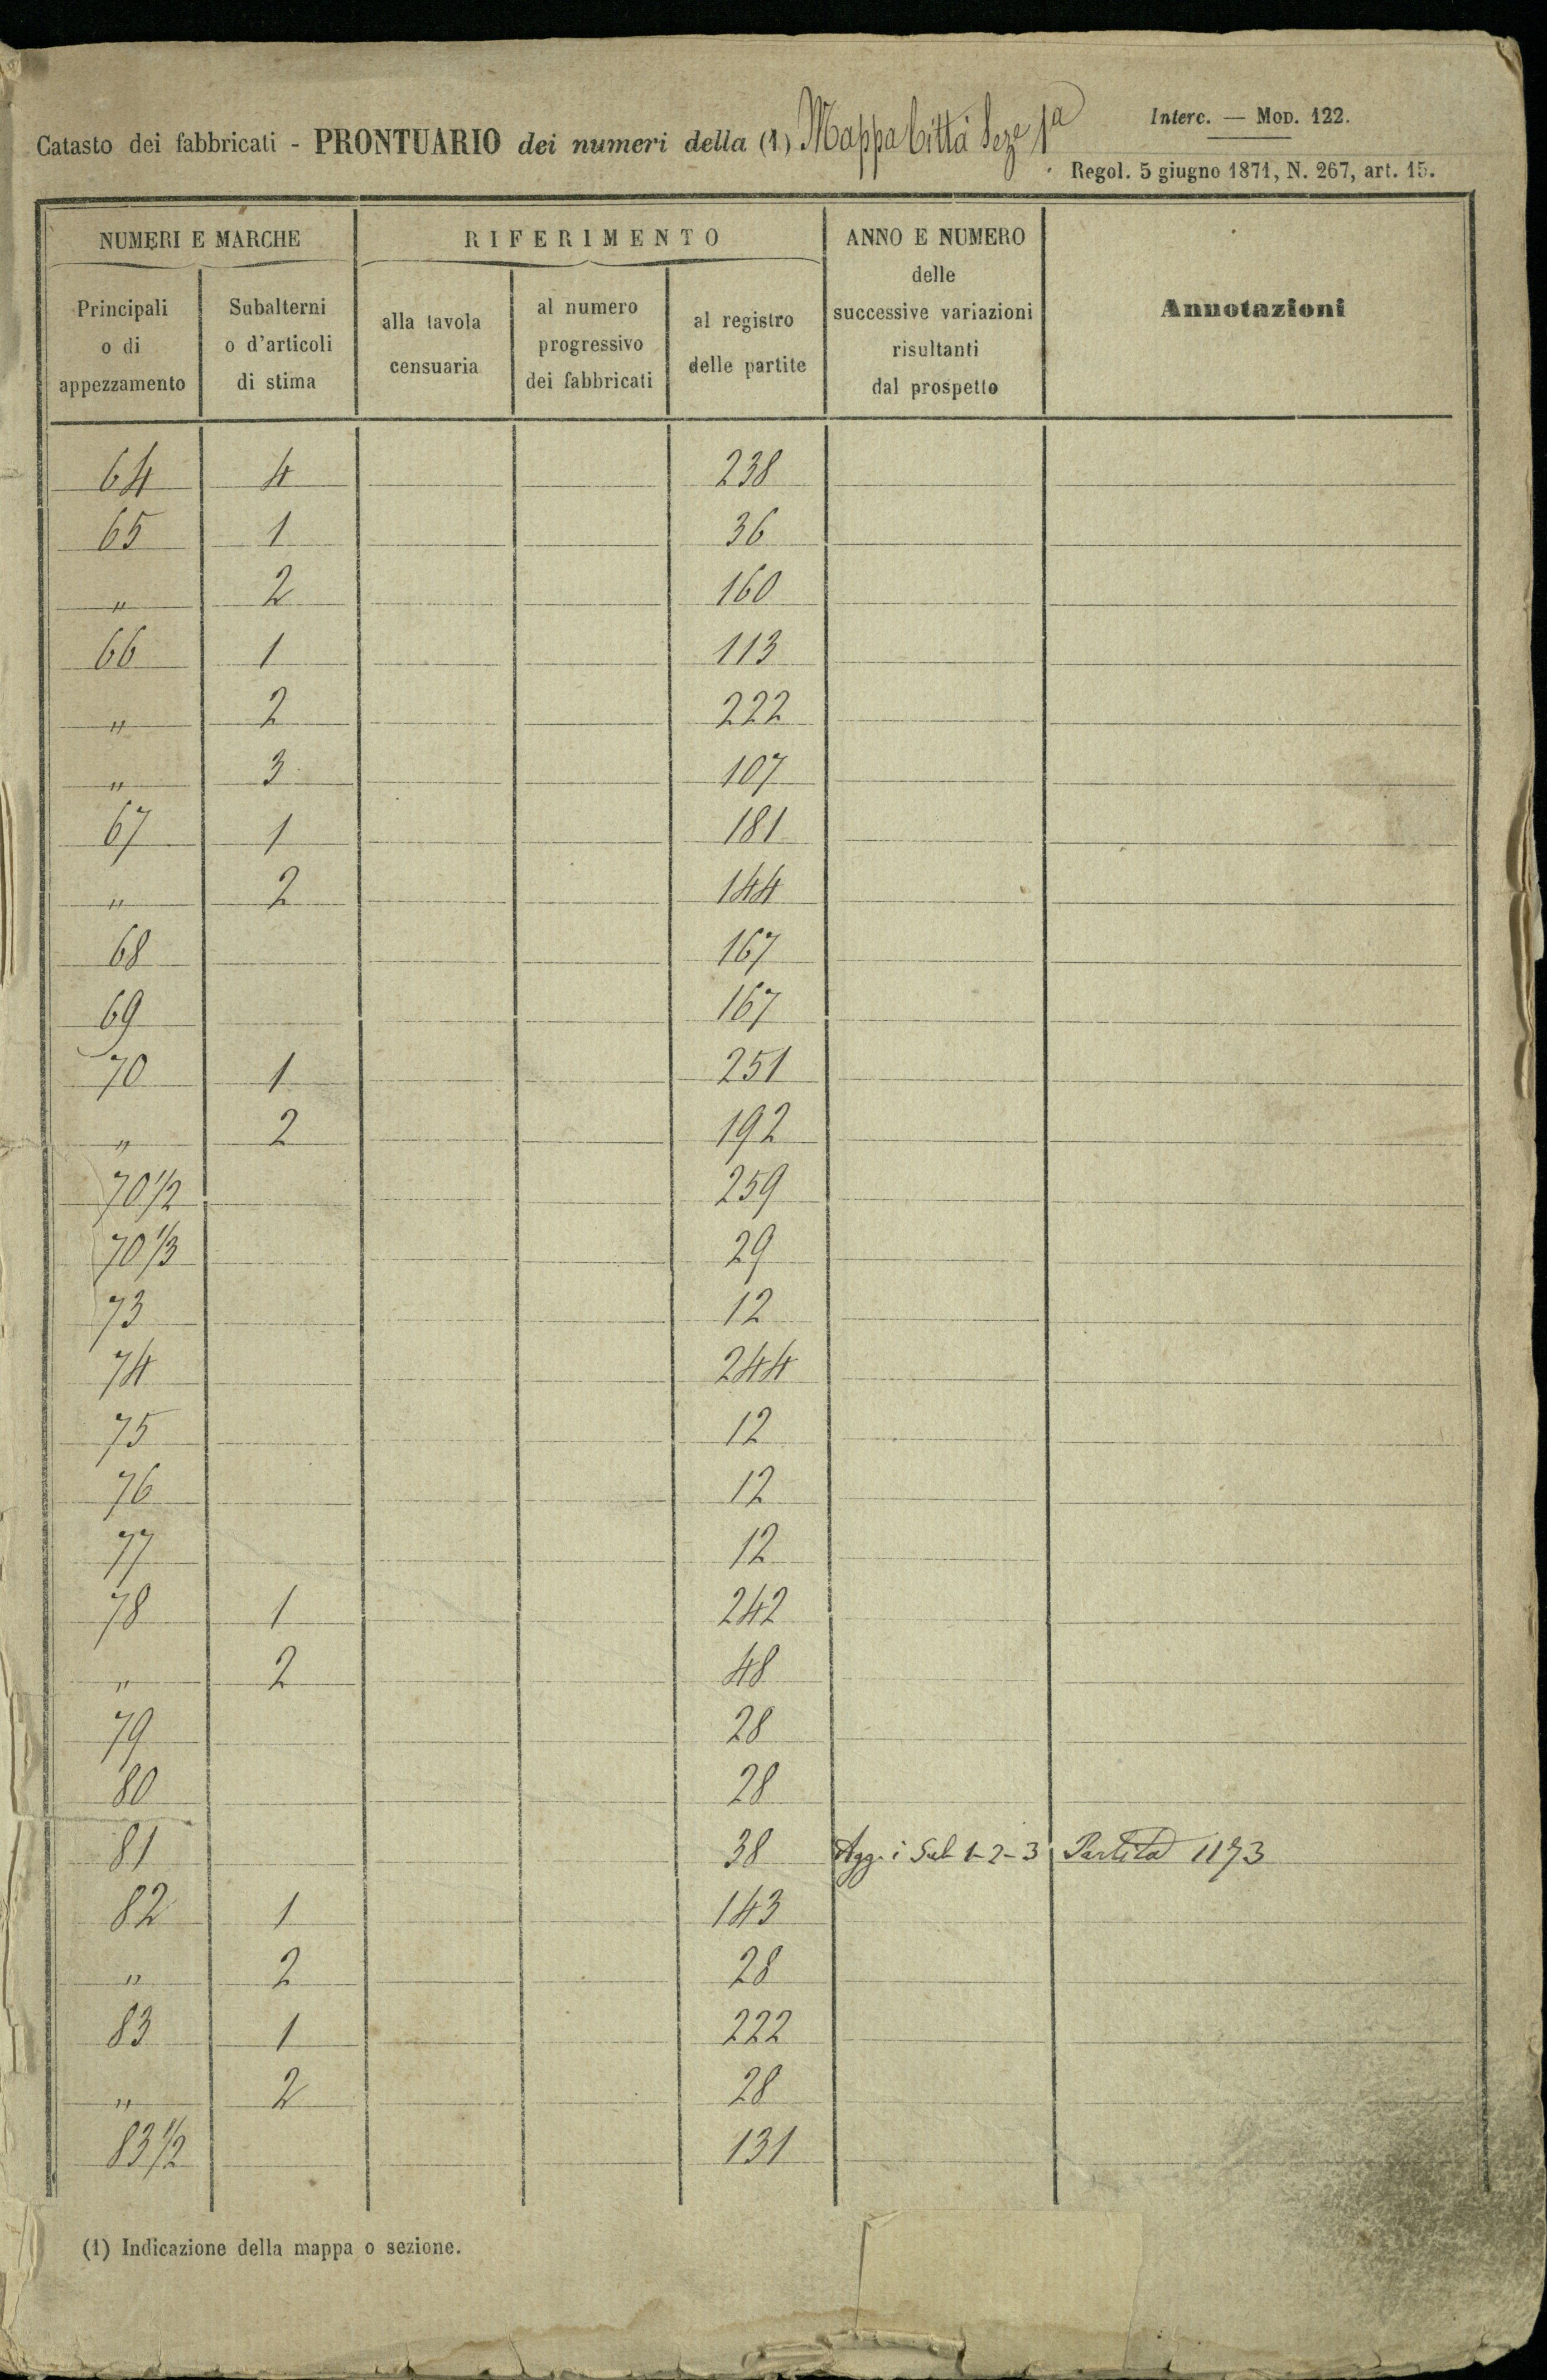 Catasto dei fabbricati - PRONTUARIO dei numeri della (1) Mappa Città Seze 1a
Interc. — MOD. 122.
Regol. 5 giugno 1871, N. 267, art. 15.
NUMERI E MARCHE RIFERIMENTO ANNO E NUMERO delle successive variazioni risultanti dal prospetto Annotazioni
Principali o di appezzamento Subalterni o d'articoli di stima alla tavola censuaria al numero progressivo dei fabbricati al registro delle partite
64 4 238
65 1 36
" 2 160
66 1 113
" 2 222
" 3 107
67 1 181
" 2 144
68 167
69 167
70 1 251
" 2 192
70 1/2 259
70 1/3 29
73 12
74 244
75 12
76 12
77 12
78 1 242
" 2 48
79 28
80 28
81 38 Agg. i Sub 1-2-3 Partita 1173
82 1 143
" 2 28
83 1 222
" 2 28
83 1/2 131
(1) Indicazione della mappa o sezione.